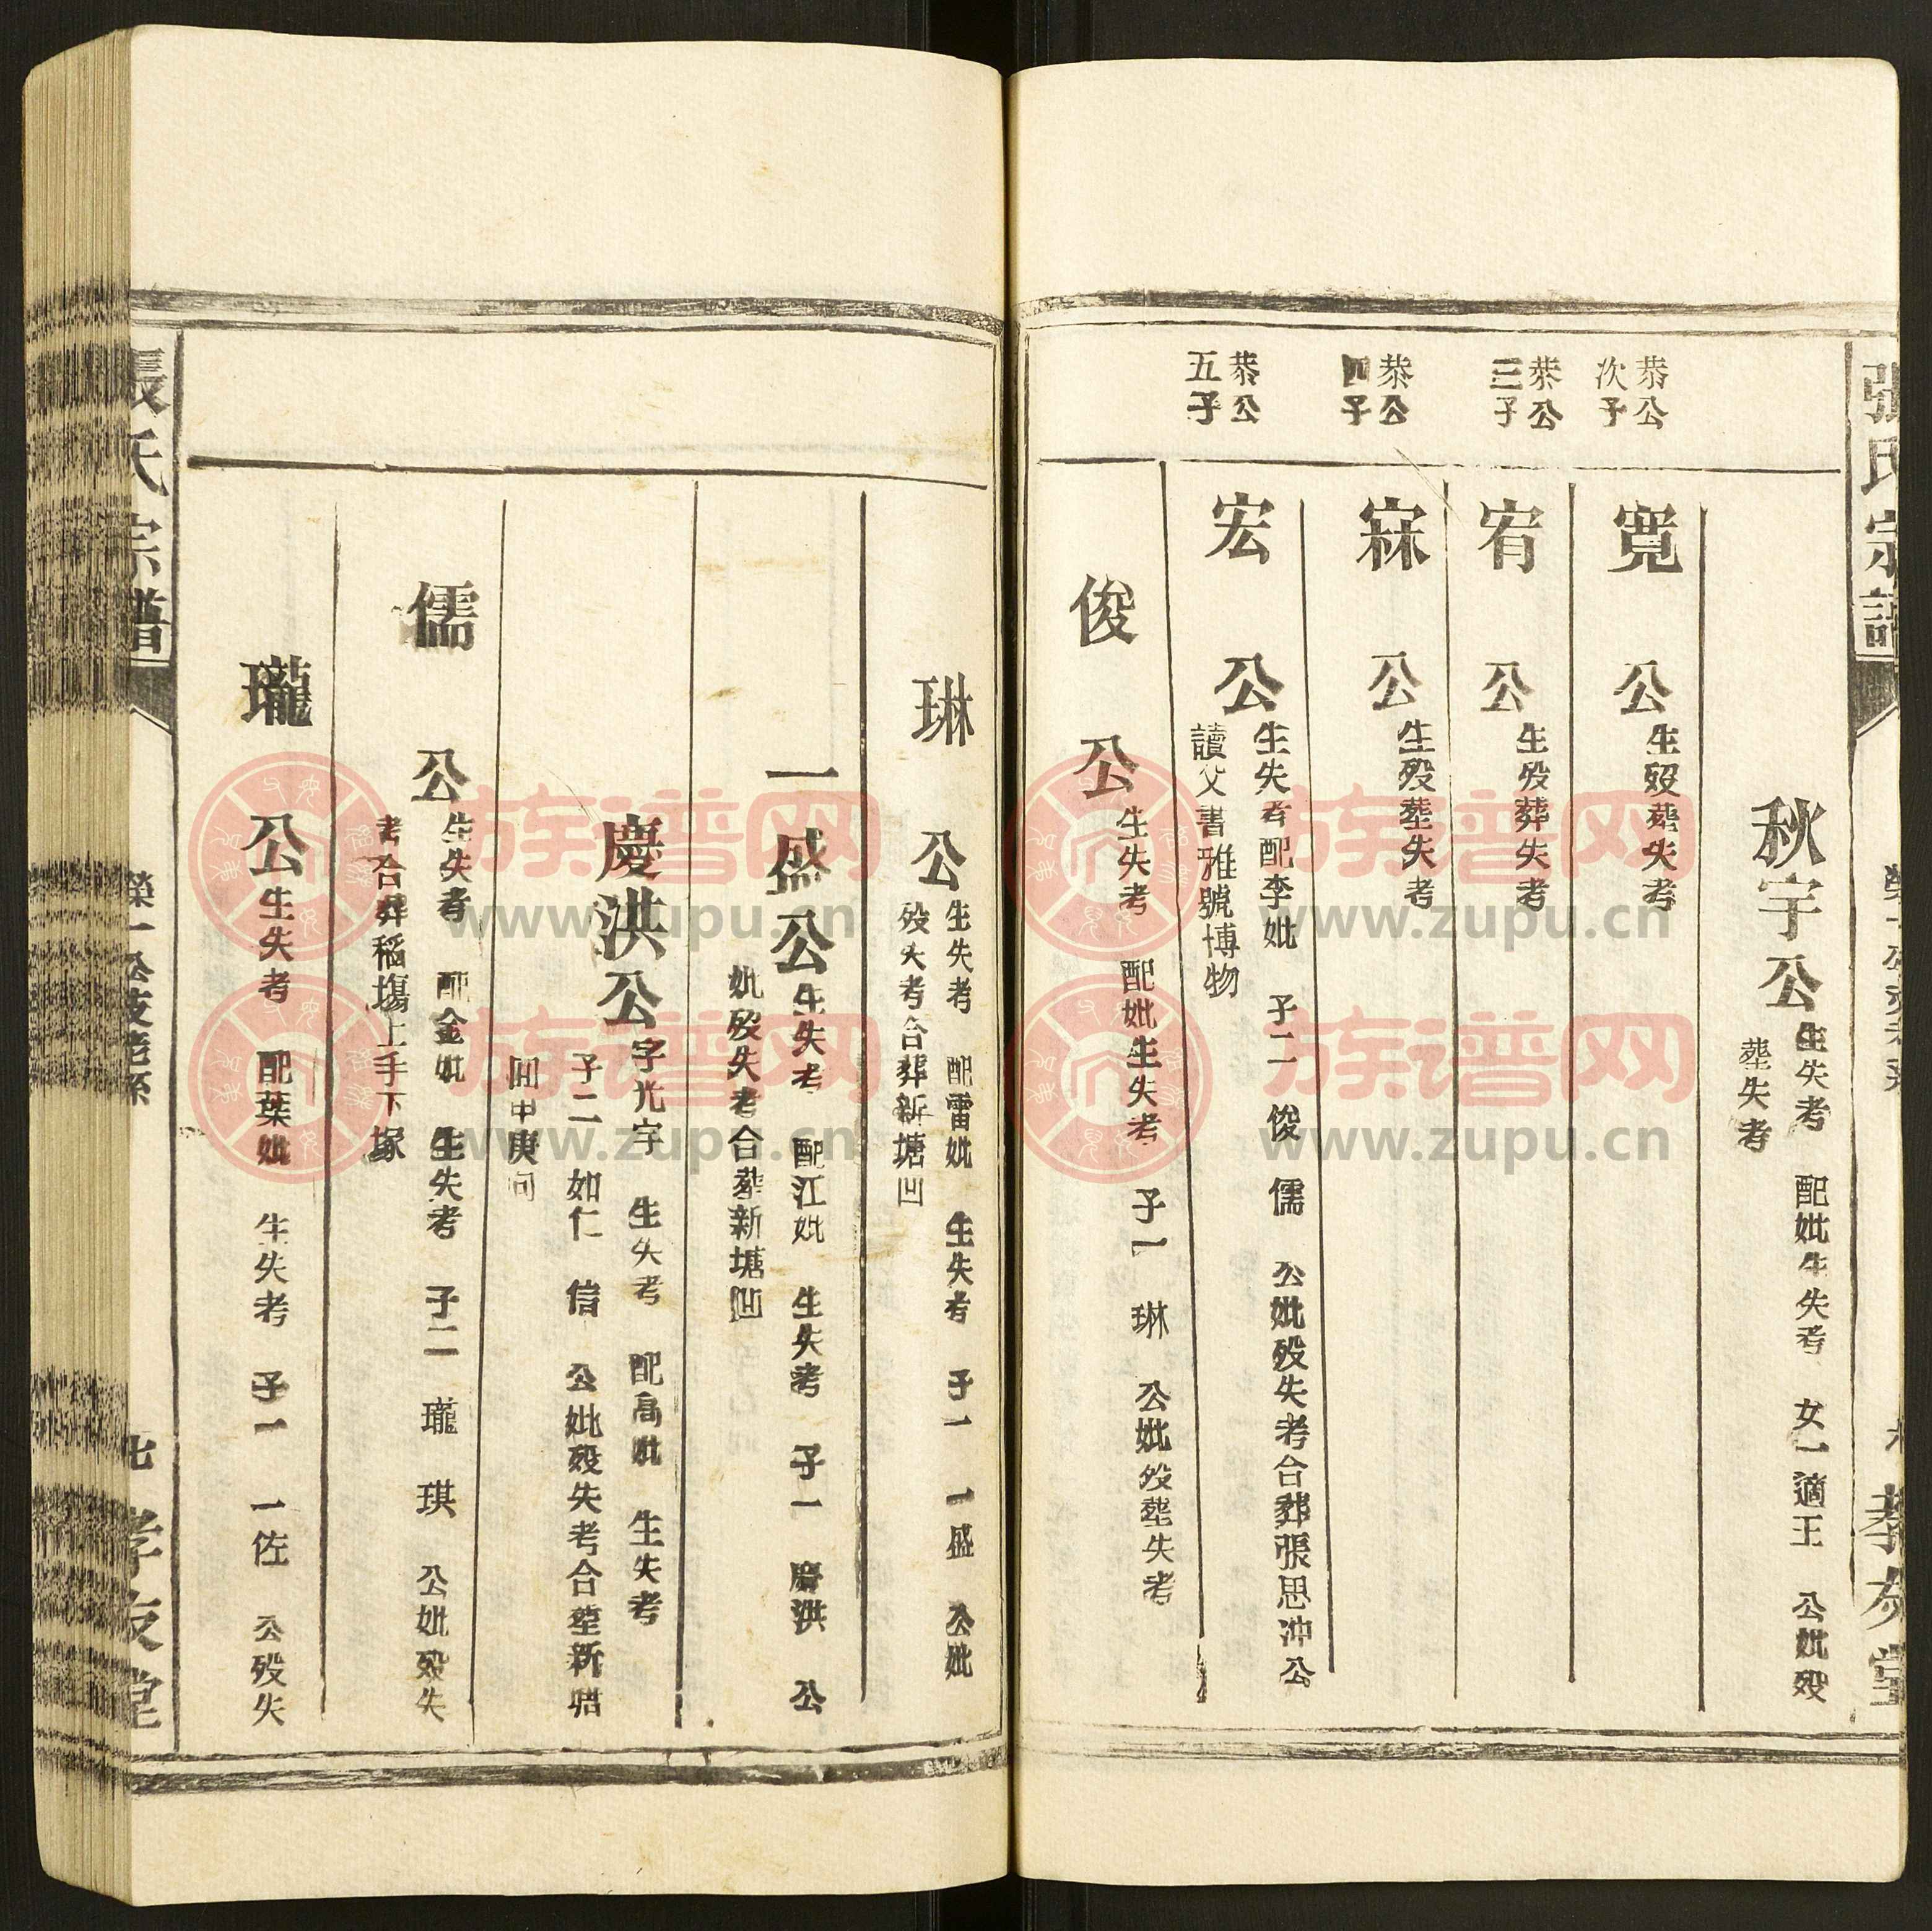 張氏宗譜
孝友堂
秋宇公
生失考 配妣生失考 女一適王 公妣歿
葬失考
恭公
次子
寬公
生歿葬失考
恭公
三子
宥公
生歿葬失考
恭公
四子
寐公
生歿葬失考
恭公
五子
宏公
生失考配李妣 子二 俊 儒 公妣歿失考合葬張思冲公
讀父書雅號博物
俊公
生失考 配妣生失考 子一 琳 公妣歿葬失考
琳公
生失考 配雷妣 生失考 子一 一盛 公妣
歿失考合葬新塘凹
一盛公
生失考 配江妣 生失考 子一 慶洪 公
妣歿失考合葬新塘凹
慶洪公
字光宇 生失考 配高妣 生失考
子二 如仁 信 公妣歿失考合葬新塘
凹甲庚向
儒公
生失考 配金妣 生失考 子二 瓏 琪 公妣歿失
考合葬稻塲上手下塚
瓏公
生失考 配葉妣 生失考 子一 一佐 公歿失
張氏宗譜
榮一公支世系
七
孝友堂
族谱网
www.zupu.cn
族谱网
www.zupu.cn
族谱网
www.zupu.cn
族谱网
www.zupu.cn